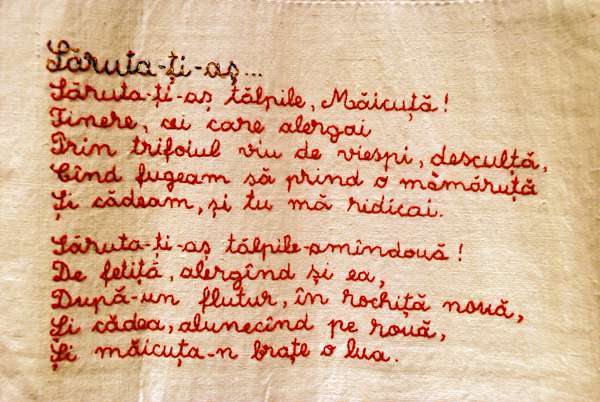 Săruta-ți-aș...
Săruta-ți-aș tălpile, Măicuță!
Tinere, cu care alergai
Prin trifoiul viu de viespi, desculță,
Cînd fugeam să prind o mămăruță
Și cădeam, și tu mă ridicai.
Săruta-ți-aș tălpile-amîndouă!
De fetiță, alergînd și ea,
După-un flutur, în rochiță nouă,
Și cădea, alunecînd pe rouă,
Și măicuța-n brațe o lua.